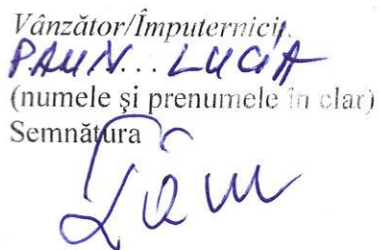 Vânzător/Împuternicit
PAUN... LUCIA
(numele şi prenumele în clar)
Semnătura